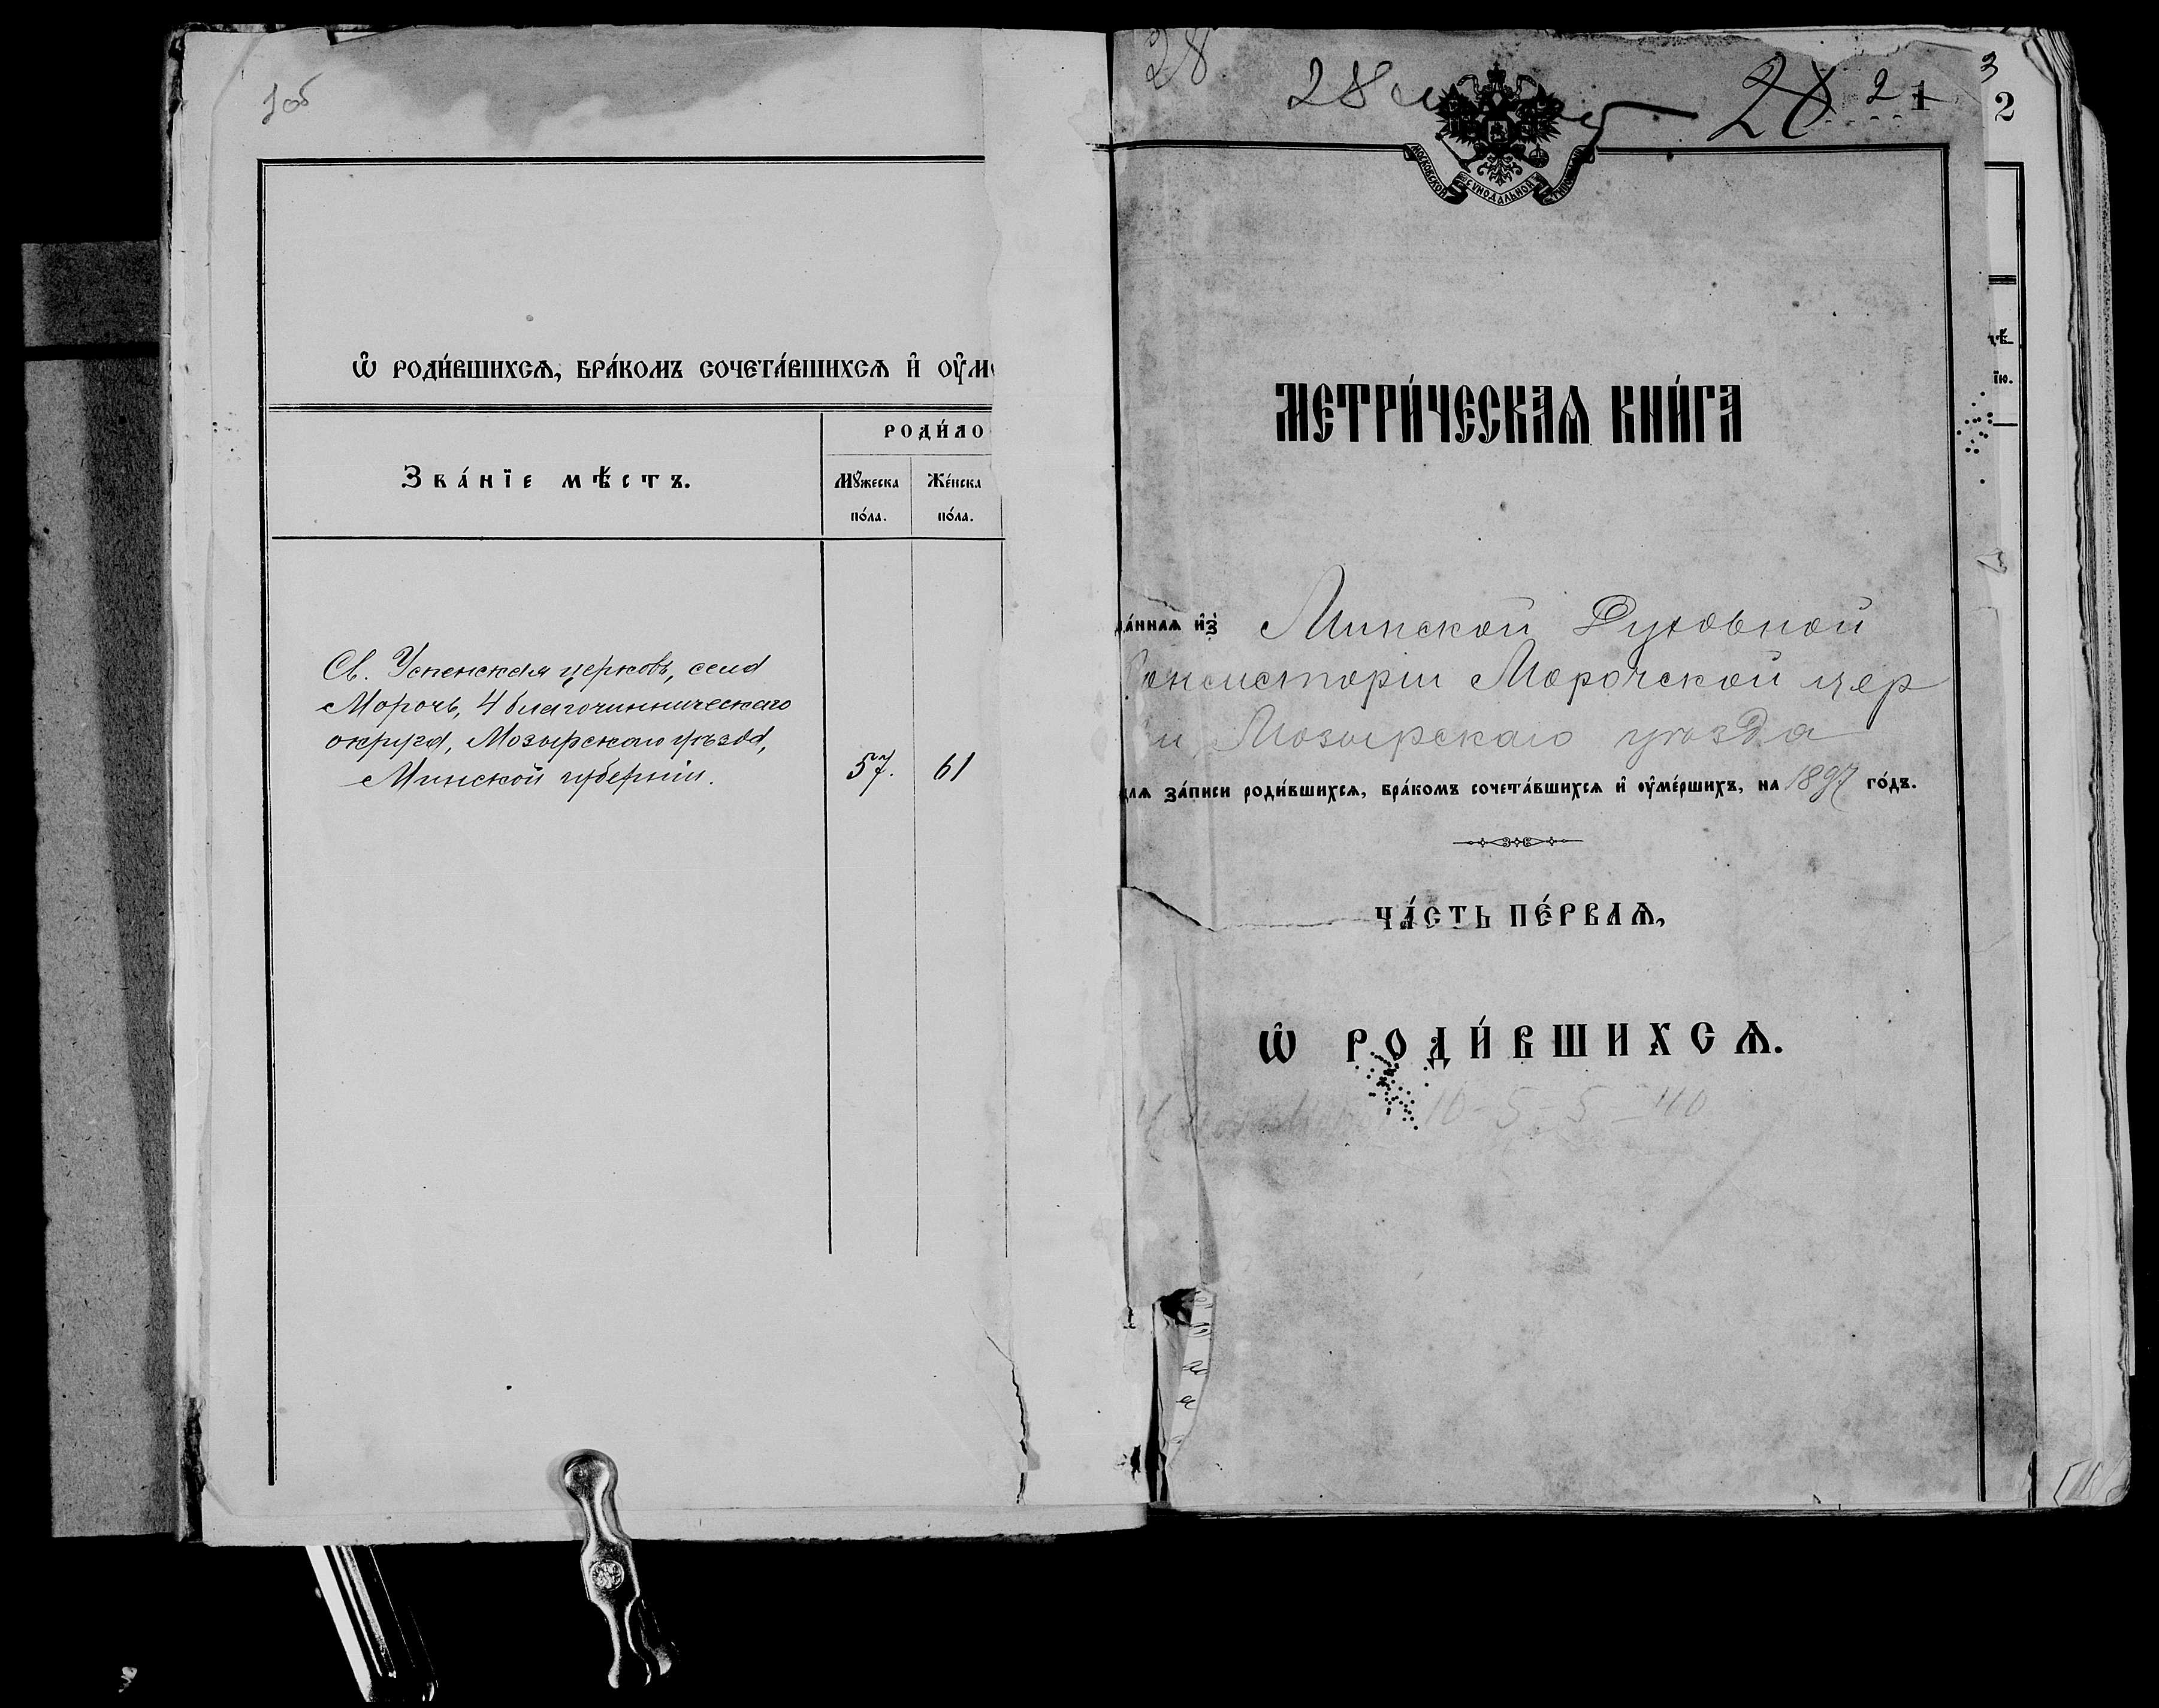 1об
Ѡ҆ РОДИ́ВШИХСѦ, БРА́КОМЪ СОЧЕТА́ВШИХСѦ И҆ ОУ҆М
Зва́нїе мѣстъ.
РОДИ́ЛО
Мꙋ́жеска
по́ла.
Же́нска
по́ла.
Св. Успенская церковь, села
Морочь, 4 благочинническаго
округа, Мозырскаго уѣзда,
Минской губерніи.
57.
61
28
28
28
2
1
3
2
МОСКОВСКОЙ СѴНОДАЛЬНОЙ
МЕТРИ́ЧЕСКАѦ КНИ́ГА
да́ннаѧ и҆з̾ Минской Духовной
Консисторіи Морочской цер
и Мозырскаго уѣзда
длѧ за́писи роди́вшихсѧ, бра́комъ сочета́вшихсѧ и҆ оу҆ме́ршихъ, на 1897 го́дъ.
ЧА́СТЬ ПЕ́РВАѦ,
Ѡ҆ РОДИ́ВШИХСѦ.
10-5-5-40
їю.